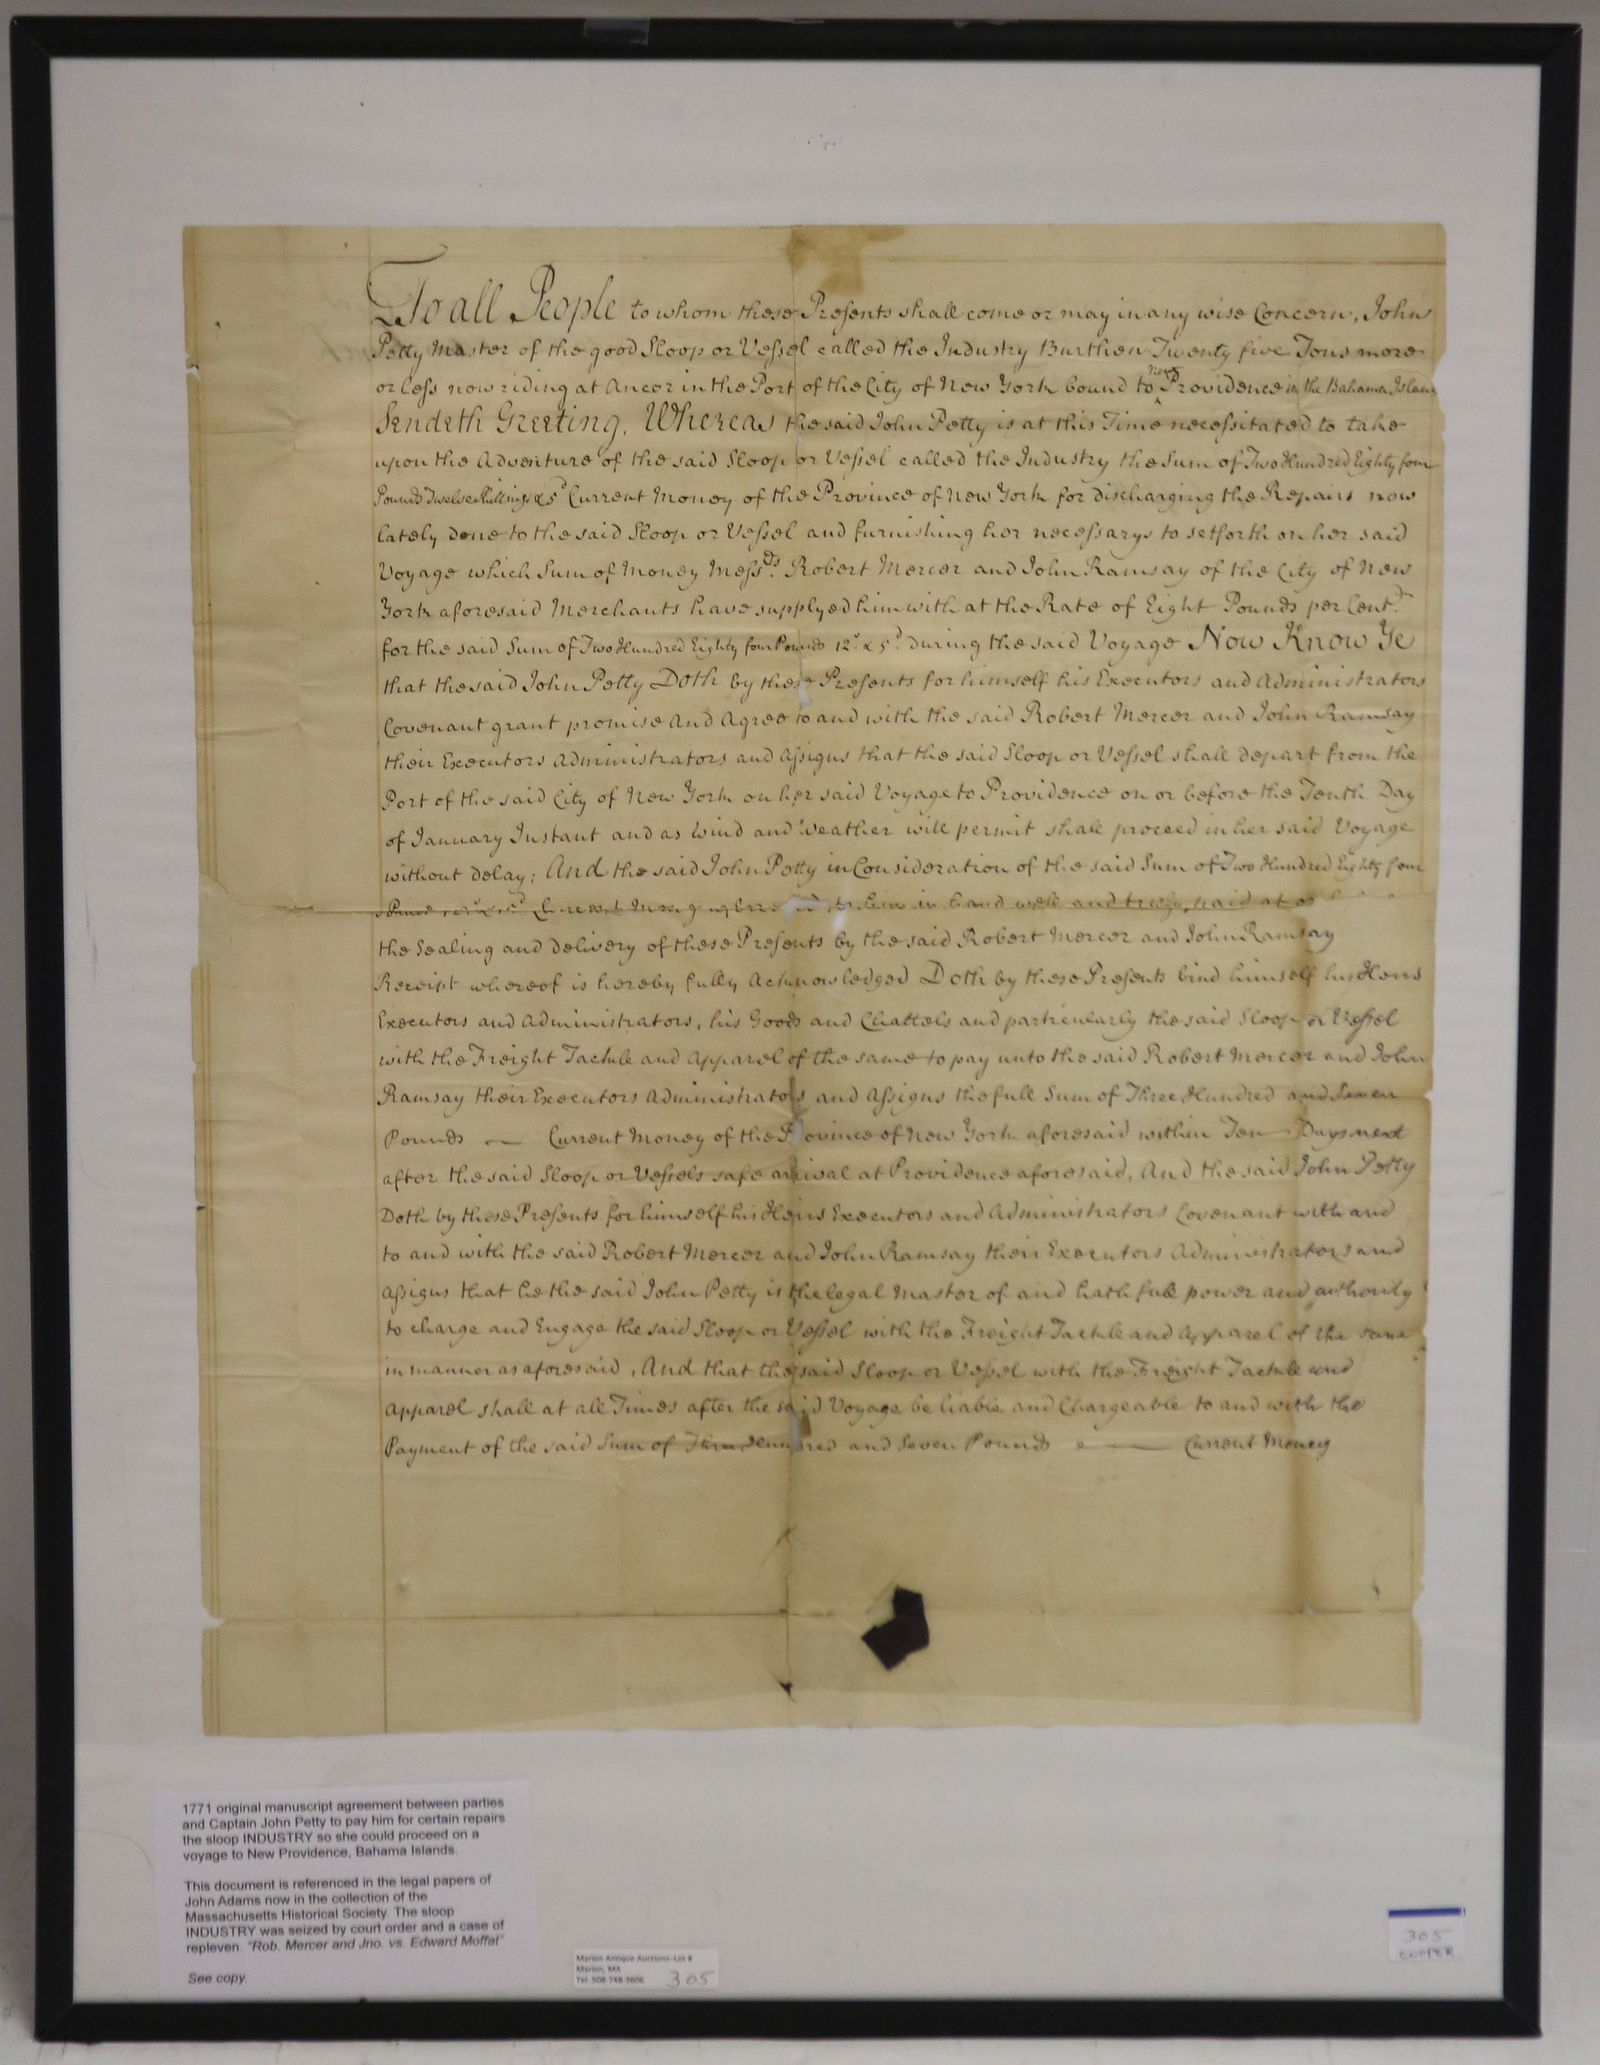 To all People to whom these Presents shall come or may in any wise Concern, John
Petty Master of the good Sloop or Vessel called the Industry Burthen Twenty five Tons more
or less now riding at Ancor in the Port of the City of New York bound to New Providence in the Bahama Islands
Sendeth Greeting, Whereas the said John Petty is at this Time necessitated to take
upon the Adventure of the said Sloop or Vessel called the Industry the Sum of Two Hundred Eighty four
Pounds Twelve Shillings & 5d Current Money of the Province of New York for discharging the Repairs now
lately done to the said Sloop or Vessel and furnishing her necessarys to setforth on her said
Voyage which Sum of Money Messrs. Robert Mercer and John Ramsay of the City of New
York aforesaid Merchants have supplyed him with at the Rate of Eight Pounds per Cent.
for the said Sum of Two Hundred Eighty four Pounds 12s & 5d during the said Voyage Now Know Ye
that the said John Petty Doth by these Presents for himself his Executors and Administrators
Covenant grant promise And Agree to and with the said Robert Mercer and John Ramsay
their Executors Administrators and Assigns that the said Sloop or Vessel shall depart from the
Port of the said City of New York on her said Voyage to Providence on or before the Tenth Day
of January Instant and as Wind and Weather will permit shall proceed in her said Voyage
without delay; And the said John Petty in Consideration of the said Sum of Two Hundred Eighty four
Current Money to him in hand well and truly paid at or
the Sealing and delivery of these Presents by the said Robert Mercer and John Ramsay
Receipt whereof is hereby fully Acknowledged Doth by these Presents bind himself his Heirs
Executors and Administrators, his Goods and Chattels and particularly the said Sloop or Vessel
with the Freight Tackle and Apparel of the same to pay unto the said Robert Mercer and John
Ramsay their Executors Administrators and Assigns the full Sum of Three Hundred and Seven
Pounds — Current Money of the Province of New York aforesaid within Ten Days next
after the said Sloop or Vessels safe arrival at Providence aforesaid, And the said John Petty
Doth by these Presents for himself his Heirs Executors and Administrators Covenant with and
to and with the said Robert Mercer and John Ramsay their Executors Administrators and
Assigns that he the said John Petty is the legal Master of and hath full power and authority
to charge and Engage the said Sloop or Vessel with the Freight Tackle and Apparel of the same
in manner as aforesaid, And that the said Sloop or Vessel with the Freight Tackle and
Apparel shall at all Times after the said Voyage be liable and Chargeable to and with the
Payment of the said Sum of Three Hundred and Seven Pounds — Current Money
1771 original manuscript agreement between parties
and Captain John Petty to pay him for certain repairs
the sloop INDUSTRY so she could proceed on a
voyage to New Providence, Bahama Islands.
This document is referenced in the legal papers of
John Adams now in the collection of the
Massachusetts Historical Society. The sloop
INDUSTRY was seized by court order and a case of
repleven. "Rob. Mercer and Jno. vs. Edward Moffat"
See copy.
Marion Antique Auctions-Lot #
Marion, MA
Tel. 508-748-3606 305
305
COPPER